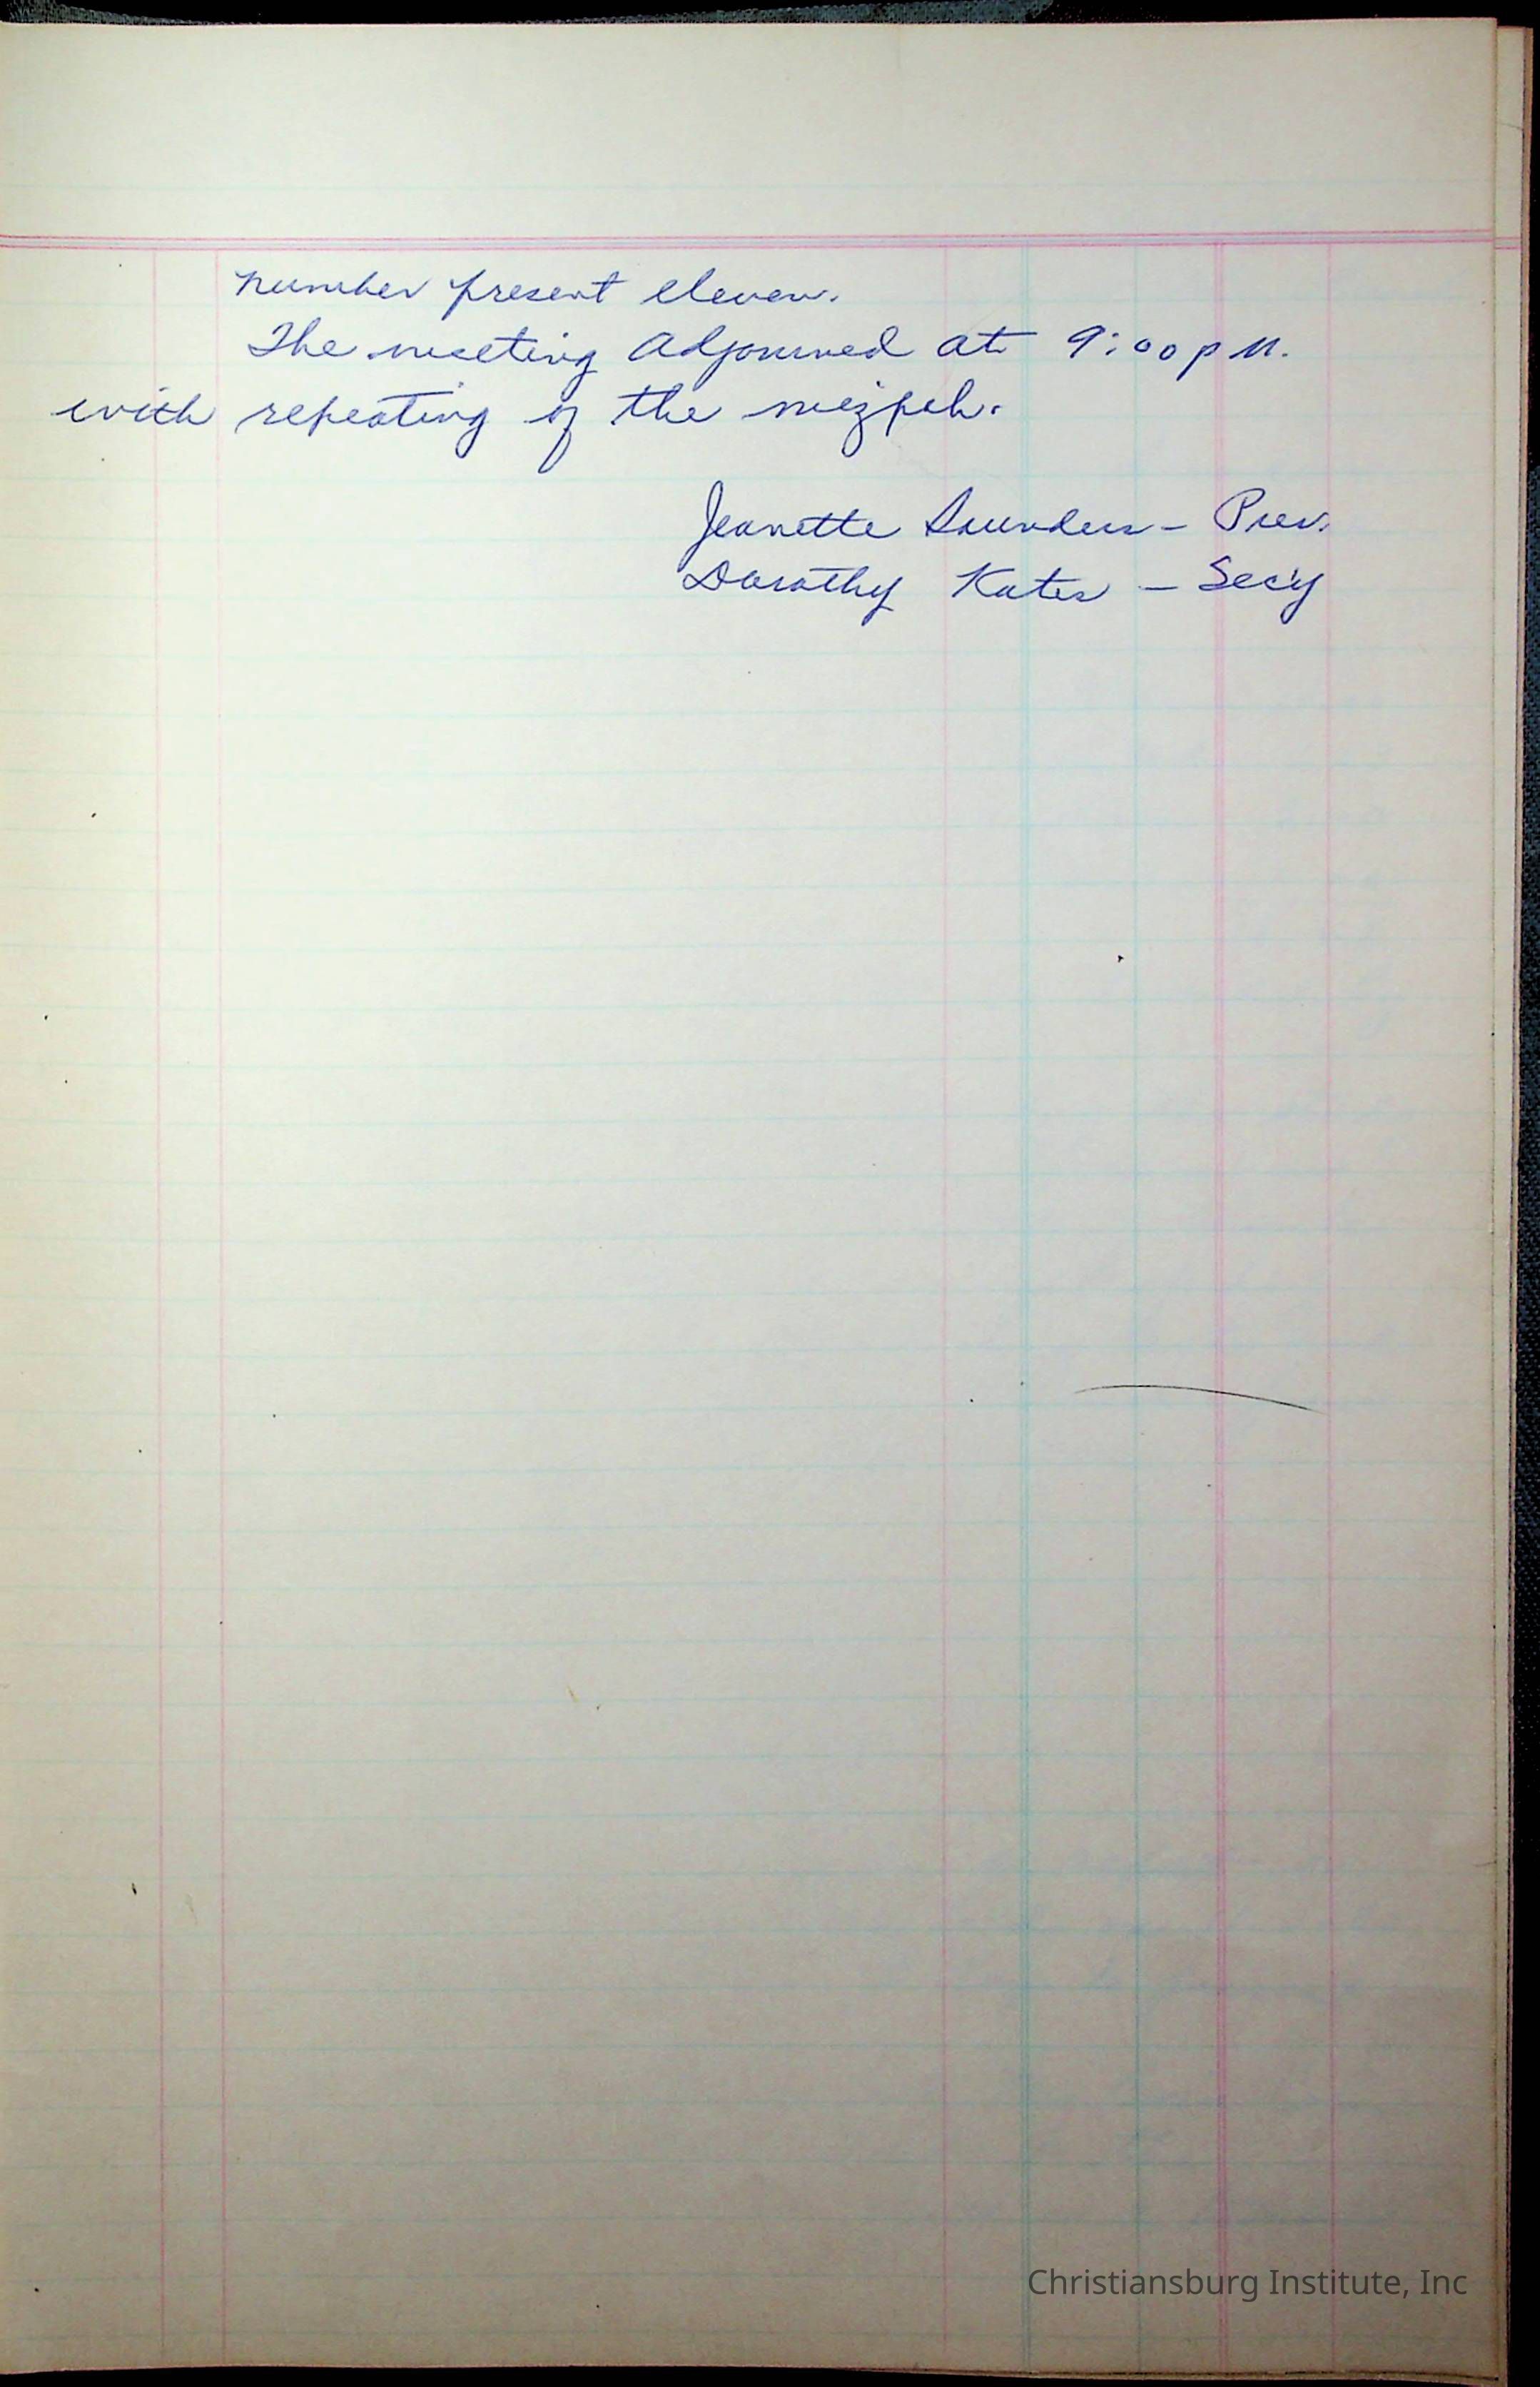 number present eleven.
The meeting adjourned at 9:00 p M.
with repeating of the mizpah.
Jeanette Saunders - Pres.
Dorothy Kates - Sec'y
Christiansburg Institute, Inc